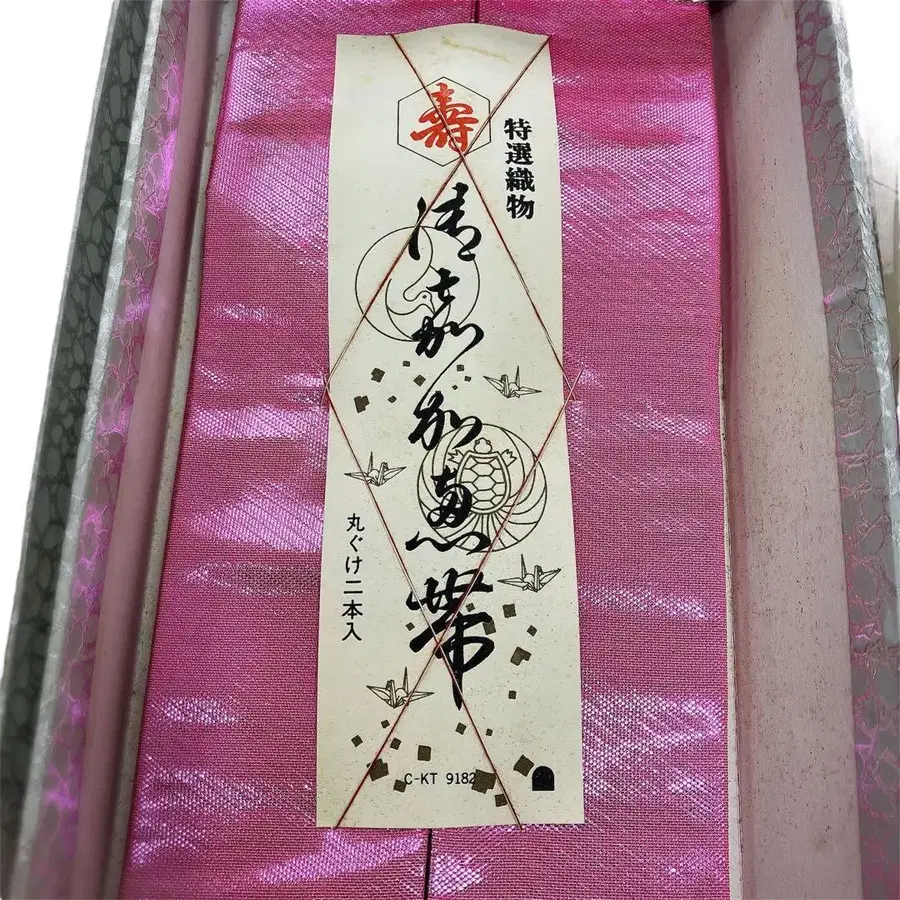 寿
特選織物
御嘉加恵帯
丸ぐけ二本入
C-KT 9182